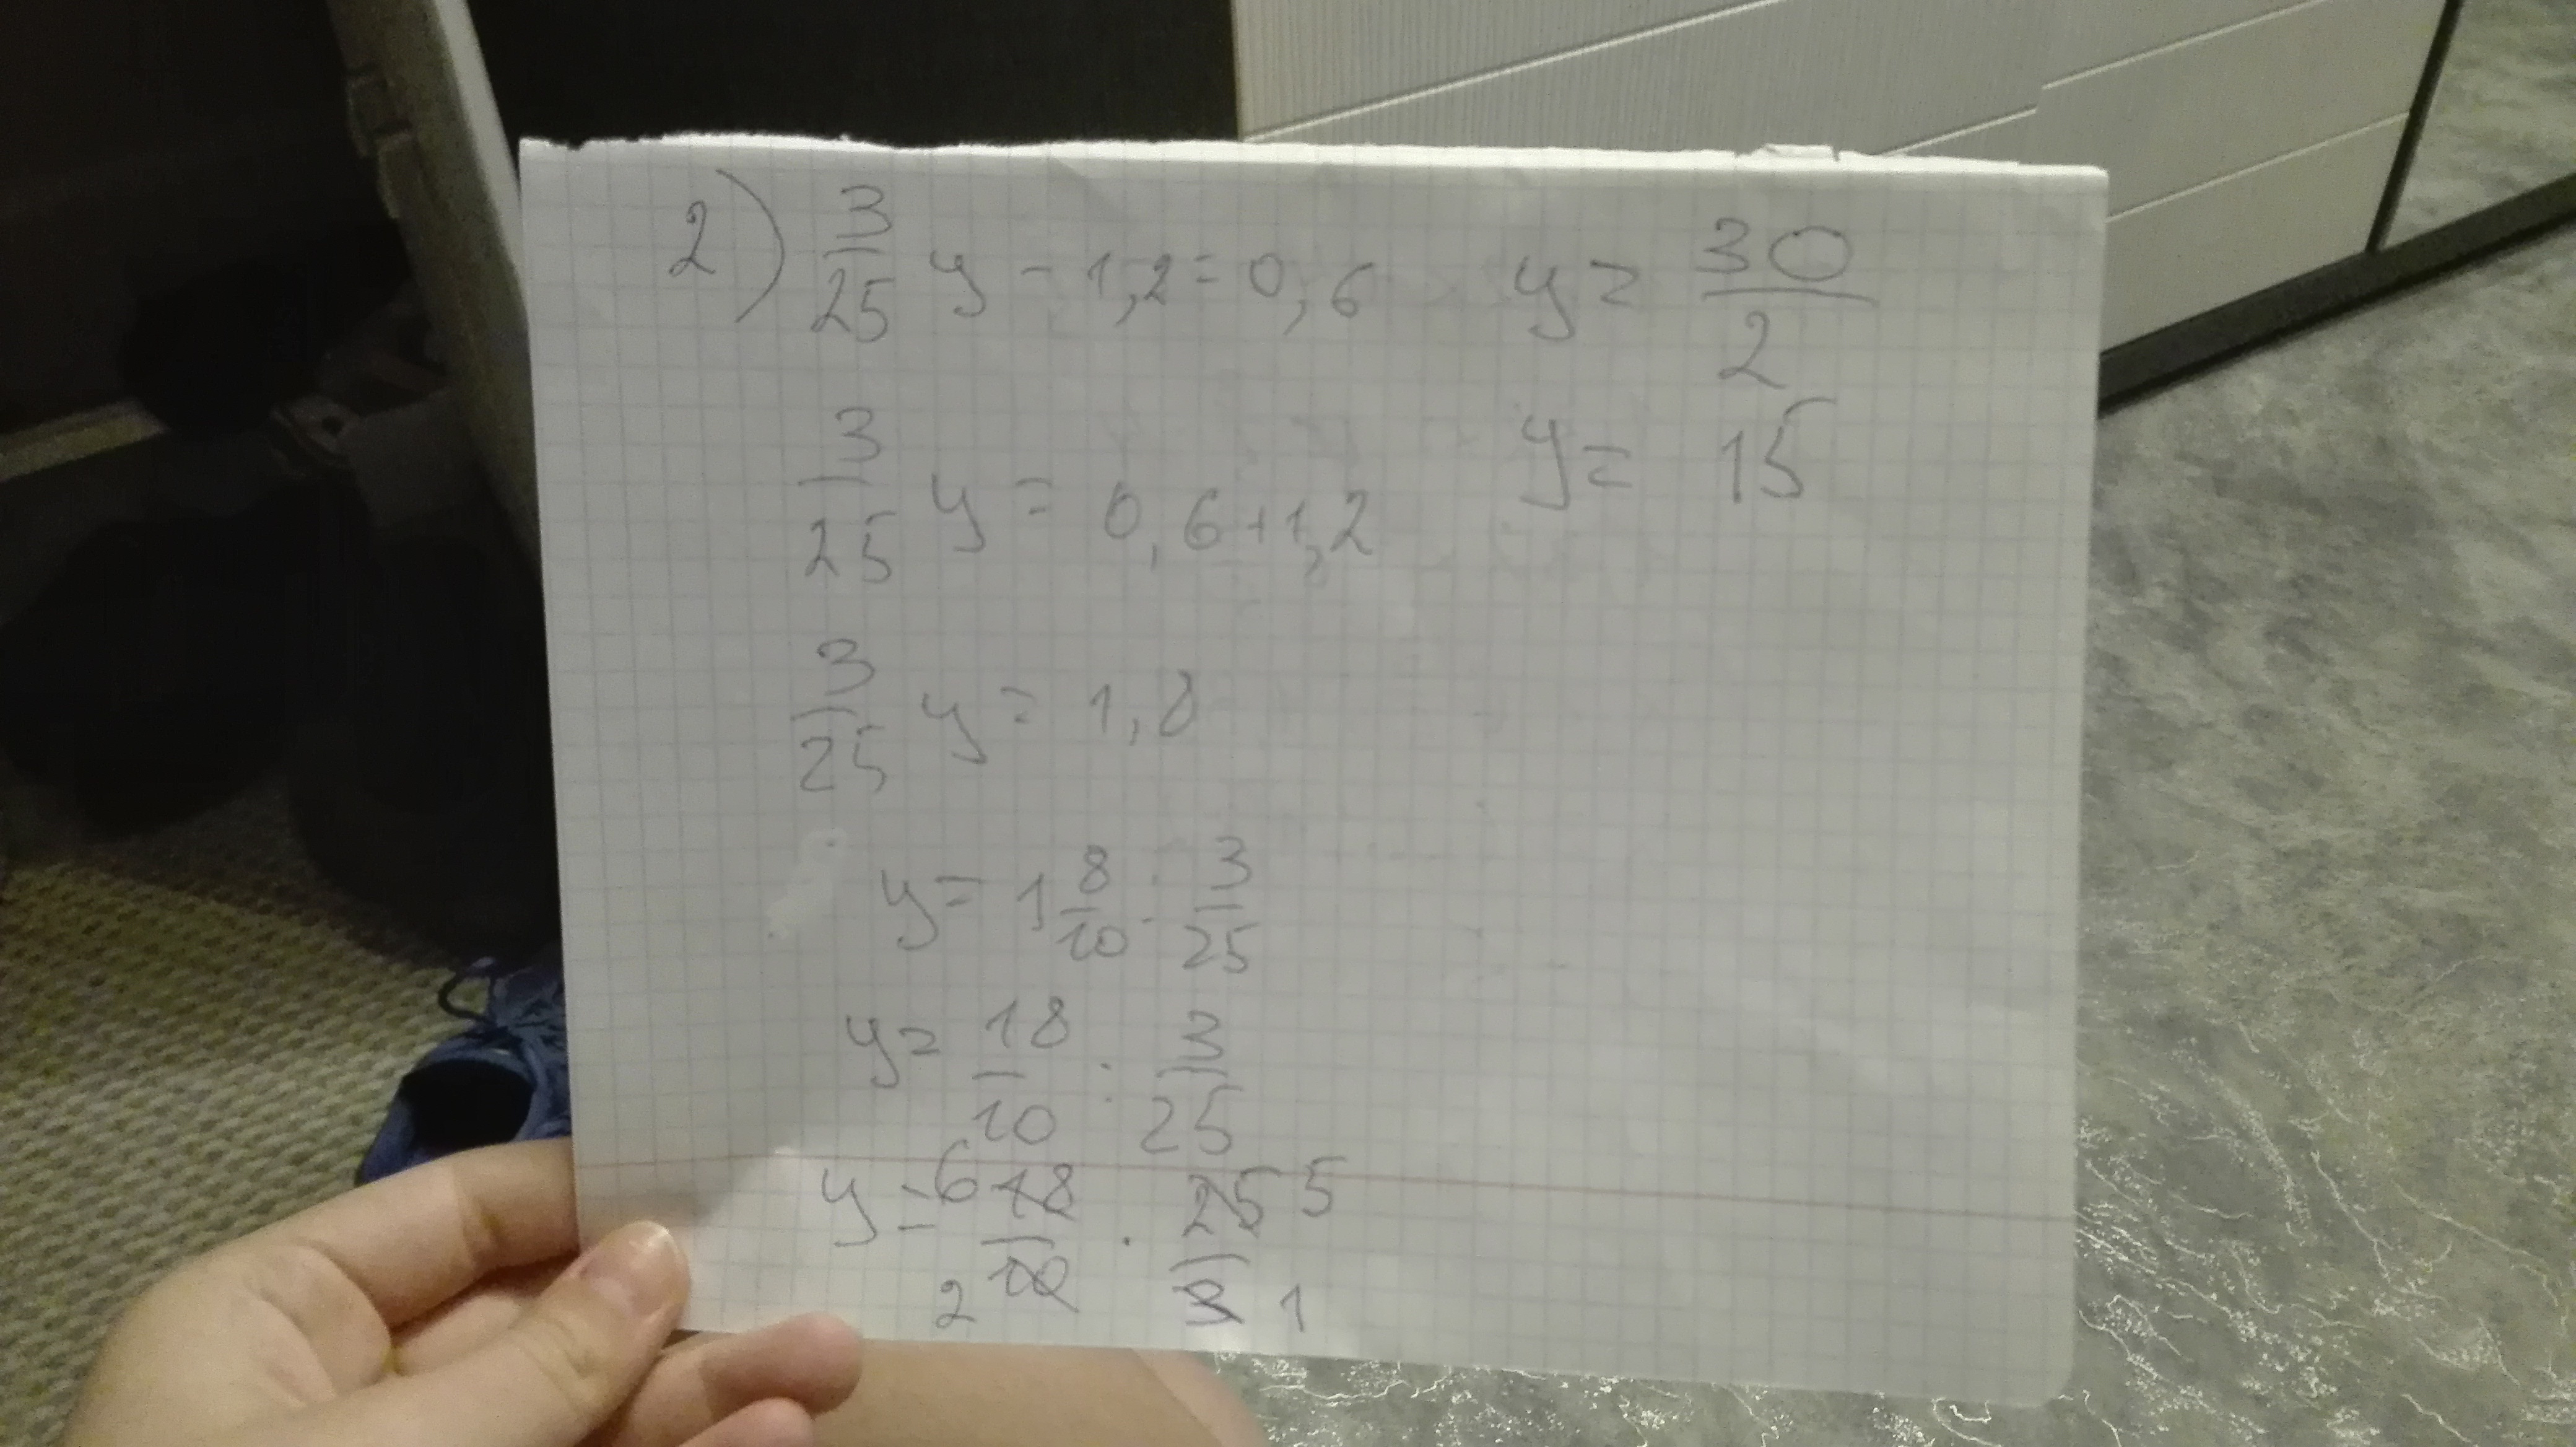 2) 3/25 y - 1,2 = 0,6
3/25 y = 0,6 + 1,2
3/25 y = 1,8
y = 1 8/10 : 3/25
y = 18/10 : 3/25
y = 6 18/10 2 · 25/3 5 1
y = 30/2
y = 15